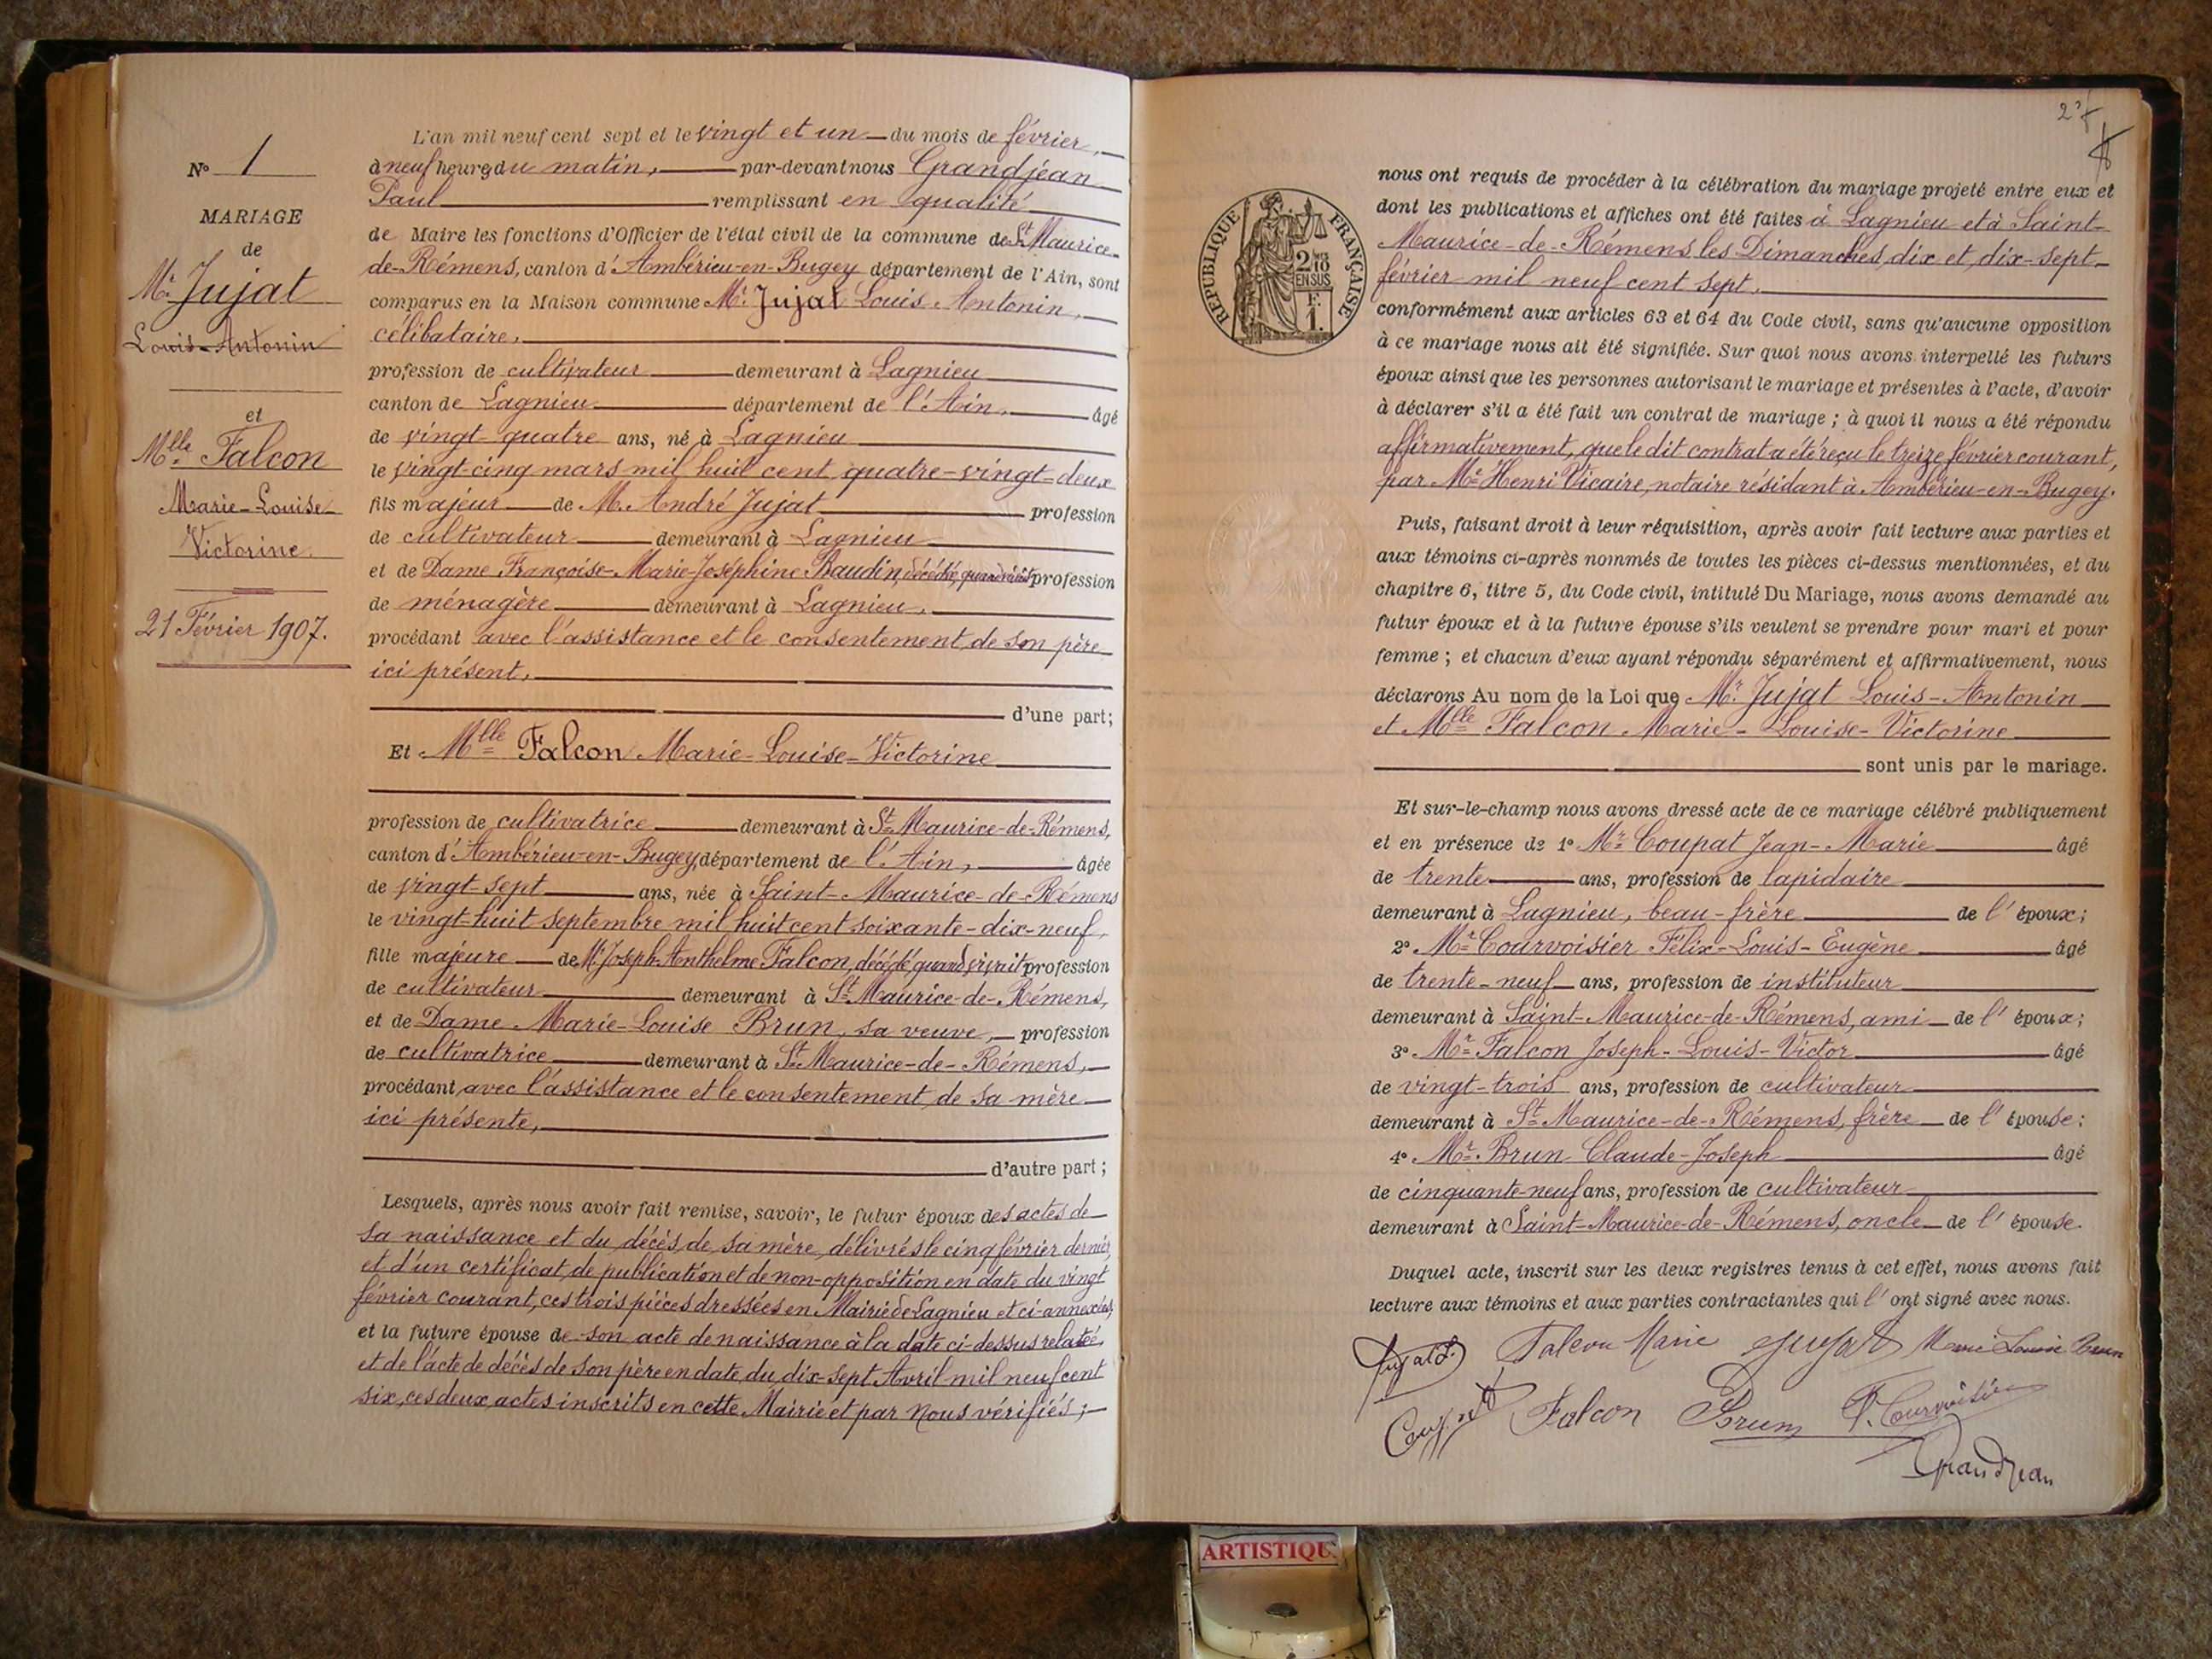 N° 1
MARIAGE
de
Mr. Jujat
Louis-Antonin
et
Mlle Falcon
Marie-Louise
Victorine
21 Février 1907.
L'an mil neuf cent sept et le vingt et un du mois de février,
à neuf heures du matin, par-devant nous Grandjean
Paul remplissant en qualité
de Maire les fonctions d'Officier de l'état civil de la commune de St Maurice-
de-Rémens, canton d'Ambérieu-en-Bugey département de l'Ain, sont
comparus en la Maison commune Mr. Jujat Louis-Antonin,
célibataire,
profession de cultivateur demeurant à Lagnieu
canton de Lagnieu département de l'Ain, âgé
de vingt-quatre ans, né à Lagnieu
le vingt-cinq mars mil huit cent quatre-vingt-deux
fils majeur de M. André Jujat profession
de cultivateur demeurant à Lagnieu
et de Dame Françoise-Marie-Joséphine Baudin, décédée, quand vivait profession
de ménagère demeurant à Lagnieu,
procédant avec l'assistance et le consentement de son père
ici présent,
d'une part;
Et Mlle Falcon Marie-Louise-Victorine
profession de cultivatrice demeurant à St Maurice-de-Rémens,
canton d'Ambérieu-en-Bugey, département de l'Ain, âgée
de vingt-sept ans, née à Saint-Maurice-de-Rémens
le vingt-huit septembre mil huit cent soixante-dix-neuf,
fille majeure de Mr Joseph-Anthelme Falcon, décédé, quand vivait profession
de cultivateur demeurant à St Maurice-de-Rémens,
et de Dame Marie-Louise Brun, sa veuve, profession
de cultivatrice demeurant à St Maurice-de-Rémens,
procédant avec l'assistance et le consentement de sa mère
ici présente,
d'autre part;
Lesquels, après nous avoir fait remise, savoir, le futur époux des actes de
sa naissance et du décès de sa mère, délivrés le cinq février dernier
et d'un certificat de publication et de non-opposition en date du vingt
février courant, ces trois pièces dressées en Mairie de Lagnieu et ci-annexées,
et la future épouse de son acte de naissance à la date ci-dessus relatée
et de l'acte de décès de son père en date du dix-sept Avril mil neuf cent
six, ces deux actes inscrits en cette Mairie et par nous vérifiés;
RÉPUBLIQUE FRANÇAISE
2/10 EN SUS
F.
1.
nous ont requis de procéder à la célébration du mariage projeté entre eux et
dont les publications et affiches ont été faites à Lagnieu et à Saint-
Maurice-de-Rémens les Dimanches dix et dix-sept
février mil neuf cent sept,
conformément aux articles 63 et 64 du Code civil, sans qu'aucune opposition
à ce mariage nous ait été signifiée. Sur quoi nous avons interpellé les futurs
époux ainsi que les personnes autorisant le mariage et présentes à l'acte, d'avoir
à déclarer s'il a été fait un contrat de mariage ; à quoi il nous a été répondu
affirmativement, que le dit contrat a été reçu le treize février courant,
par Me Henri Vicaire, notaire résidant à Ambérieu-en-Bugey.
Puis, faisant droit à leur réquisition, après avoir fait lecture aux parties et
aux témoins ci-après nommés de toutes les pièces ci-dessus mentionnées, et du
chapitre 6, titre 5, du Code civil, intitulé Du Mariage, nous avons demandé au
futur époux et à la future épouse s'ils veulent se prendre pour mari et pour
femme ; et chacun d'eux ayant répondu séparément et affirmativement, nous
déclarons Au nom de la Loi que Mr. Jujat Louis-Antonin
et Mlle Falcon Marie-Louise-Victorine
sont unis par le mariage.
Et sur-le-champ nous avons dressé acte de ce mariage célébré publiquement
et en présence de 1° Mr Coupat Jean-Marie âgé
de trente ans, profession de lapidaire
demeurant à Lagnieu, beau-frère de l'époux;
2° Mr Courvoisier Félix-Louis-Eugène âgé
de trente-neuf ans, profession de instituteur
demeurant à Saint-Maurice-de-Rémens, ami de l'époux;
3° Mr Falcon Joseph-Louis-Victor âgé
de vingt-trois ans, profession de cultivateur
demeurant à St Maurice-de-Rémens, frère de l'épouse;
4° Mr Brun Claude-Joseph âgé
de cinquante-neuf ans, profession de cultivateur
demeurant à Saint-Maurice-de-Rémens, oncle de l'épouse.
Duquel acte, inscrit sur les deux registres tenus à cet effet, nous avons fait
lecture aux témoins et aux parties contractantes qui l'ont signé avec nous.
Jujat L. Falcon Marie Jujat Marie Louise Brun
Coupat Falcon Brun F. Courvoisier
Grandjean
ARTISTIQU